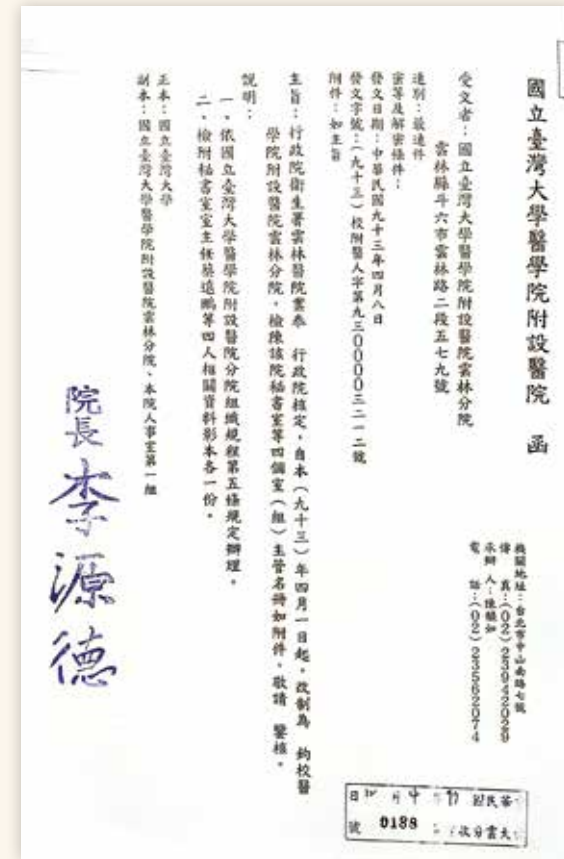 國立臺灣大學醫學院附設醫院　函
機關地址：台北市中山南路七號
傳　真：(02)23942029
承辦人：陳
電　話：(02)23562074
受文者：國立臺灣大學醫學院附設醫院雲林分院
雲林縣斗六市雲林路二段五七九號
速別：最速件
密等及解密條件：
發文日期：中華民國九十三年四月八日
發文字號：(九十三)校附醫人字第九三0000三二一二號
附件：如主旨
主旨：行政院衛生署雲林醫院業奉　行政院核定，自本(九十三)年四月一日起，改制為　鈞校醫
學院附設醫院雲林分院，檢陳該院秘書室等四個室(組)主管名冊如附件，敬請　鑒核。
說明：
一、依國立臺灣大學醫學院附設醫院分院組織規程第五條規定辦理。
二、檢附秘書室室主任蔡遠鵬等四人相關資料影本各一份。
正本：國立臺灣大學
副本：國立臺灣大學醫學院附設醫院雲林分院、本院人事室第一組
院長 李源德
0188